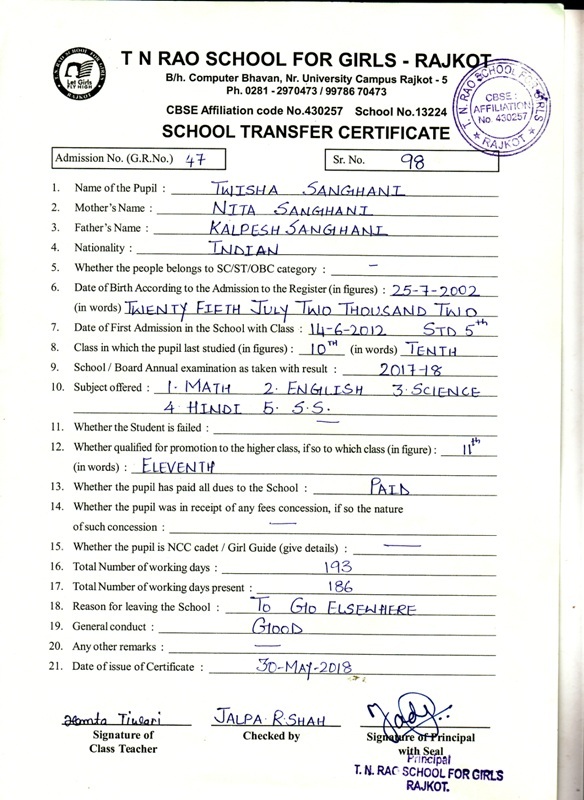 T. N. RAO SCHOOL FOR GIRLS
Let Girls
FLY HIGH
RAJKOT
T N RAO SCHOOL FOR GIRLS - RAJKOT
B/h. Computer Bhavan, Nr. University Campus Rajkot - 5
Ph. 0281 - 2970473 / 99786 70473
CBSE Affiliation code No.430257 School No.13224
T. N. RAO SCHOOL FOR GIRLS
CBSE :
AFFILIATION
No. 430257
RAJKOT
SCHOOL TRANSFER CERTIFICATE
Admission No. (G.R.No.) 47 Sr. No. 98
1. Name of the Pupil : TWISHA SANGHANI
2. Mother's Name : NITA SANGHANI
3. Father's Name : KALPESH SANGHANI
4. Nationality : INDIAN
5. Whether the people belongs to SC/ST/OBC category : –
6. Date of Birth According to the Admission to the Register (in figures) : 25-7-2002
(in words) TWENTY FIFTH JULY TWO THOUSAND TWO
7. Date of First Admission in the School with Class : 14-6-2012 STD 5th
8. Class in which the pupil last studied (in figures) : 10TH (in words) TENTH
9. School / Board Annual examination as taken with result : 2017-18
10. Subject offered : 1. MATH 2. ENGLISH 3. SCIENCE
4. HINDI 5. S.S.
11. Whether the Student is failed : —
12. Whether qualified for promotion to the higher class, if so to which class (in figure) : 11th
(in words) : ELEVENTH
13. Whether the pupil has paid all dues to the School : PAID
14. Whether the pupil was in receipt of any fees concession, if so the nature
of such concession : —
15. Whether the pupil is NCC cadet / Girl Guide (give details) : —
16. Total Number of working days : 193
17. Total Number of working days present : 186
18. Reason for leaving the School : TO GO ELSEWHERE
19. General conduct : GOOD
20. Any other remarks : —
21. Date of issue of Certificate : 30-MAY-2018
Tiwari JALPA.R.SHAH
Signature of Checked by Signature of Principal
Class Teacher with Seal
Principal
T. N. RAO SCHOOL FOR GIRLS
RAJKOT.